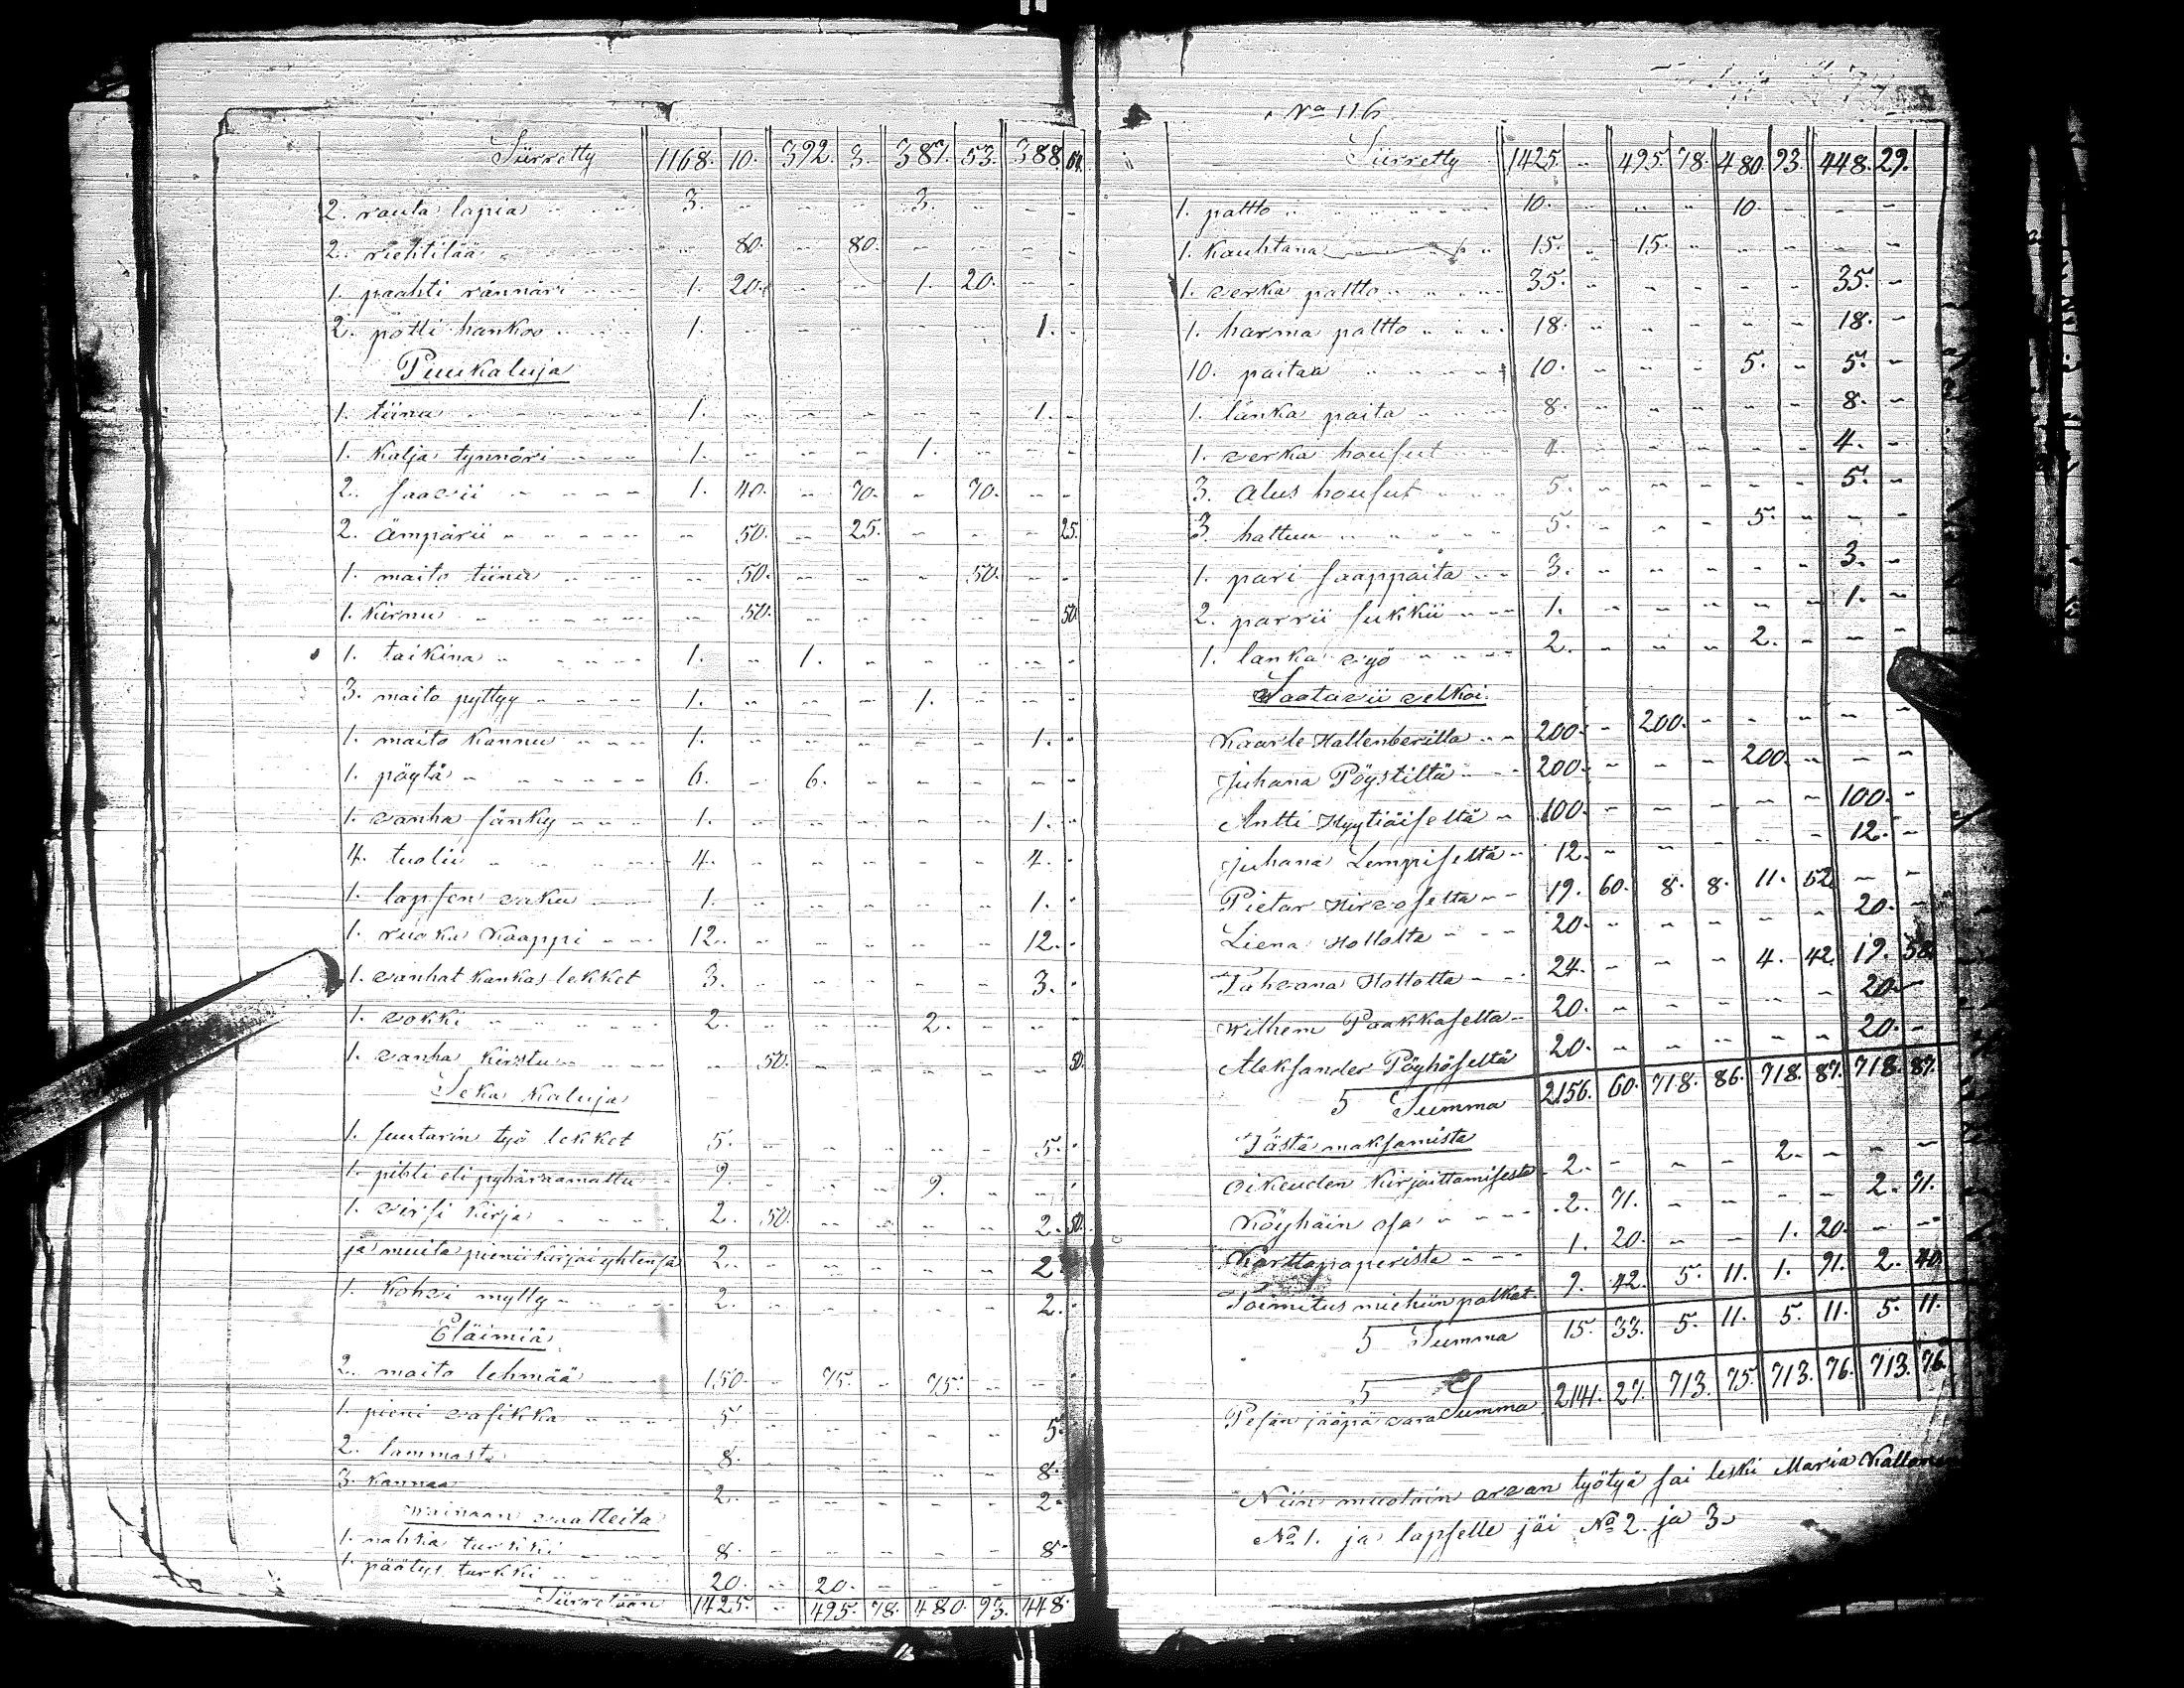 Siirretty 1168. 10. 392. 3. 387. 53. 388. 64.
2. rauta lapia 3. 3.
2. riehtilää 80. 80.
1. paahti rännäri 1. 20. 1. 20.
2. pötti hankoo 1. 1.
Puukaluja
1. tiinu 1. 1.
1. Kalja tynnöri 1. 1.
2. saavii 1. 40. 70. 70.
2. ämpärii 50. 25. 25.
1. maito tiinu 50. 50.
1. Kirnu 50. 50.
1. taikina 1. 1.
3. maito pyttyy 1. 1.
1. maito Kannu 1. 1.
1. pöytä 6. 6.
1. vanha sänky 1. 1.
4. tuolii 4. 4.
1. lapsen vaku 1. 1.
1. ruoka Kaappi 12. 12.
1. vanhat kankas lekket 3. 3.
1. vokki 2. 2.
1. vanha Kirstu 50. 50.
Seka Kaluja
1. suutarin työ lekket 5. 5.
1. pibli eli pyhäraamattu 9. 9.
1. virsi Kirja 2. 50. 2. 50.
ja muita pienii kirjai yhtensä 2. 2.
1. Kohvi mylly 2. 2.
Eläimiä
2. maito lehmää 150. 75. 75.
1. pieni vasikka 5. 5.
2. lammasta 8. 8.
3. Kannaa 2. 2.
Wainaan vaatteita
1. nahka turkki 8. 8.
1. päätys turkki 20. 20.
Siirretään 1425. 495. 78. 480. 93. 448.
No 116
Siirretty 1425. 495. 78. 480. 93. 448. 29.
1. paltto 10. 10.
1. Kauhtana 15. 15.
1. verka paltto 35. 35.
1. harma paltto 18. 18.
10. paitaa 10. 5. 5.
1. lanka paita 8. 8.
1. verka housut 4. 4.
3. alus housut 5. 5.
3. hattuu 5. 5.
1. pari saappaita 3. 3.
2. parrii sukkii 1. 1.
1. lanka vyö 2. 2.
Saatavii velkoi
Kaarle Hallenberilla 200. 200.
Juhana Pöystiltä 200. 200.
Antti Hyytiäiseltä 100. 100.
Juhana Lempiseltä 12. 12.
Pietar Hirvoselta 19. 60. 8. 8. 11. 52.
Liena Hollolta 20. 20.
Tahvana Hollolta 24. 4. 42. 19. 58.
Wilhem Paakkaselta 20. 20.
Aleksander Pöyhöseltä 20. 20.
S Summa 2156. 60. 718. 86. 718. 87. 718. 87.
Tästä maksamista
Oikeuden Kirjoittamisesta 2. 2.
Köyhäin osa 2. 71. 2. 71.
Karttapaperista 1. 20. 1. 20.
Toimitus miehiin palkat 9. 42. 5. 11. 1. 91. 2. 40.
S Summa 15. 33. 5. 11. 5. 11. 5. 11.
Pesän jääpä vara S Summa 2141. 27. 713. 75. 713. 76. 713. 76.
Niin muotoin arvan työtyä sai leski Maria
No 1. ja lapselle jäi No 2. ja 3.